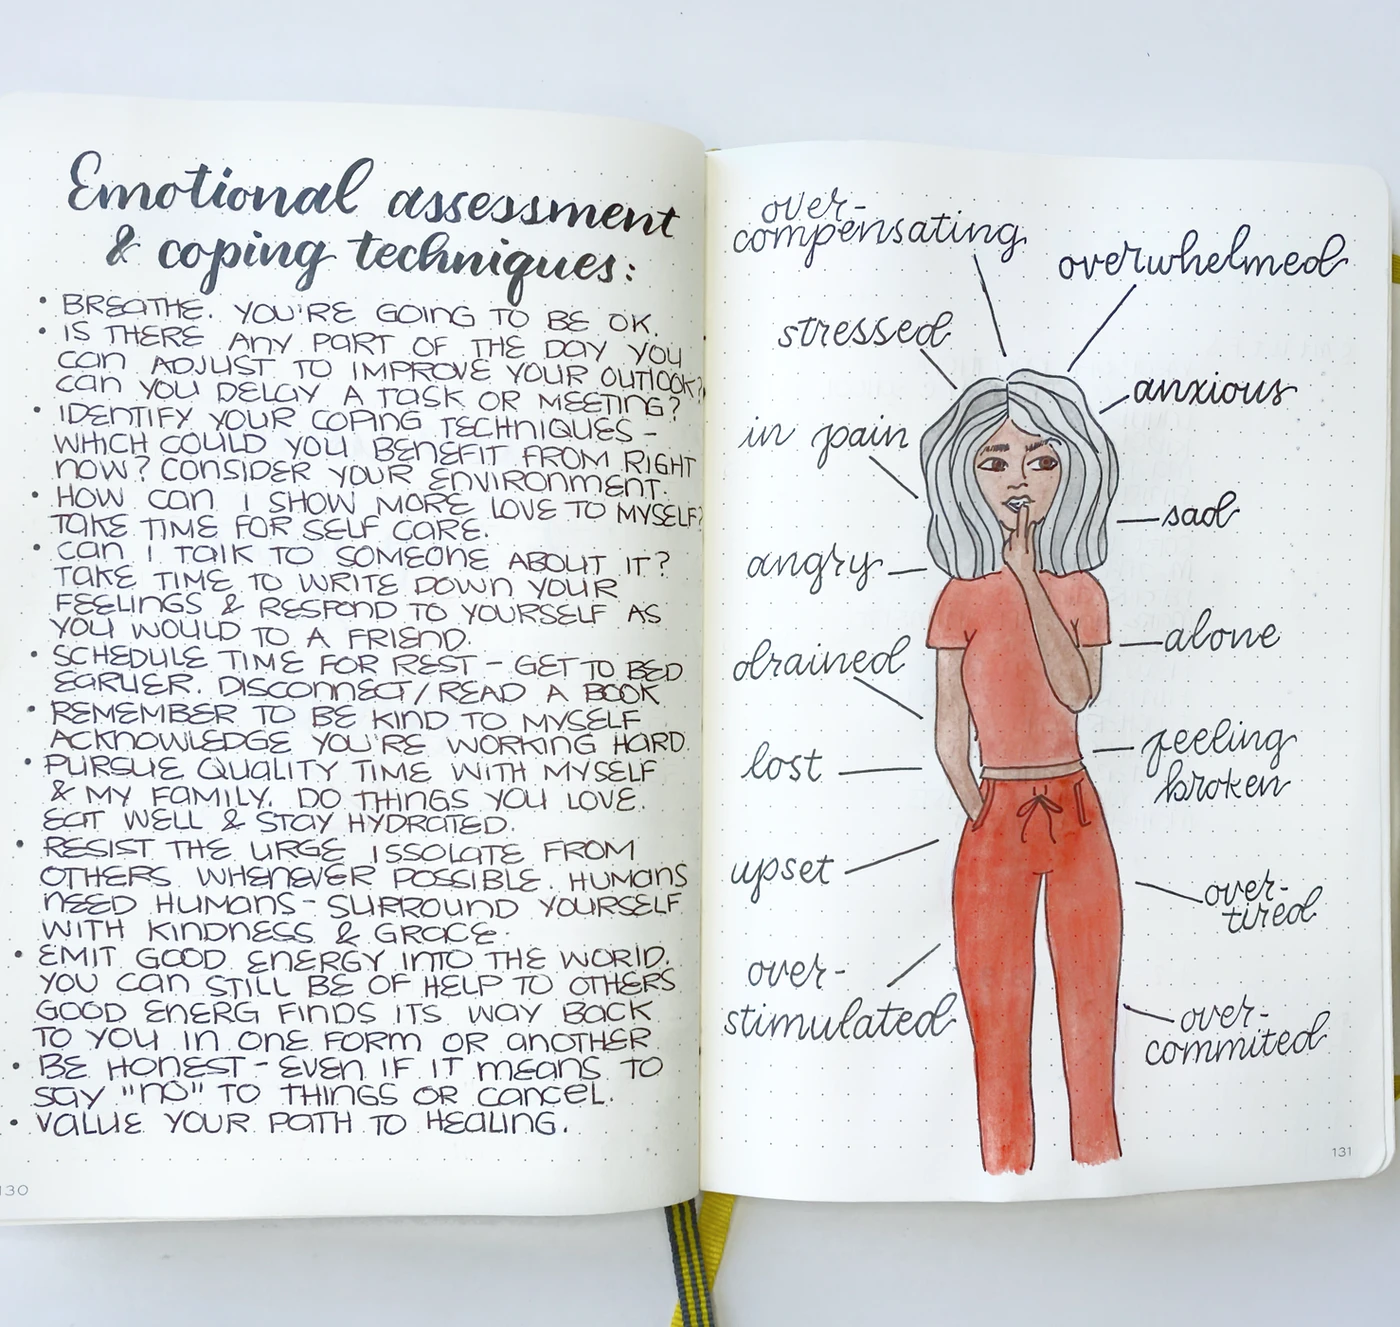 Emotional assessment
& coping techniques:
• BREATHE. YOU'RE GOING TO BE OK.
• IS THERE ANY PART OF THE DAY YOU
CAN ADJUST TO IMPROVE YOUR OUTLOOK?
CAN YOU DELAY A TASK OR MEETING?
• IDENTIFY YOUR COPING TECHNIQUES -
WHICH COULD YOU BENEFIT FROM RIGHT
NOW? CONSIDER YOUR ENVIRONMENT.
• HOW CAN I SHOW MORE LOVE TO MYSELF?
TAKE TIME FOR SELF CARE.
• CAN I TALK TO SOMEONE ABOUT IT?
TAKE TIME TO WRITE DOWN YOUR
FEELINGS & RESPOND TO YOURSELF AS
YOU WOULD TO A FRIEND.
• SCHEDULE TIME FOR REST - GET TO BED
EARLIER. DISCONNECT/READ A BOOK
• REMEMBER TO BE KIND TO MYSELF
ACKNOWLEDGE YOU'RE WORKING HARD.
• PURSUE QUALITY TIME WITH MYSELF
& MY FAMILY. DO THINGS YOU LOVE.
EAT WELL & STAY HYDRATED.
• RESIST THE URGE ISSOLATE FROM
OTHERS WHENEVER POSSIBLE. HUMANS
NEED HUMANS - SURROUND YOURSELF
WITH KINDNESS & GRACE.
• EMIT GOOD ENERGY INTO THE WORLD.
YOU CAN STILL BE OF HELP TO OTHERS
GOOD ENERG FINDS ITS WAY BACK
TO YOU IN ONE FORM OR ANOTHER
• BE HONEST - EVEN IF IT MEANS TO
SAY "NO" TO THINGS OR CANCEL.
• VALUE YOUR PATH TO HEALING.
130
over-
compensating
overwhelmed
stressed
anxious
in pain
sad
angry
alone
drained
feeling
broken
lost
upset
over-
tired
over-
stimulated
over-
commited
131